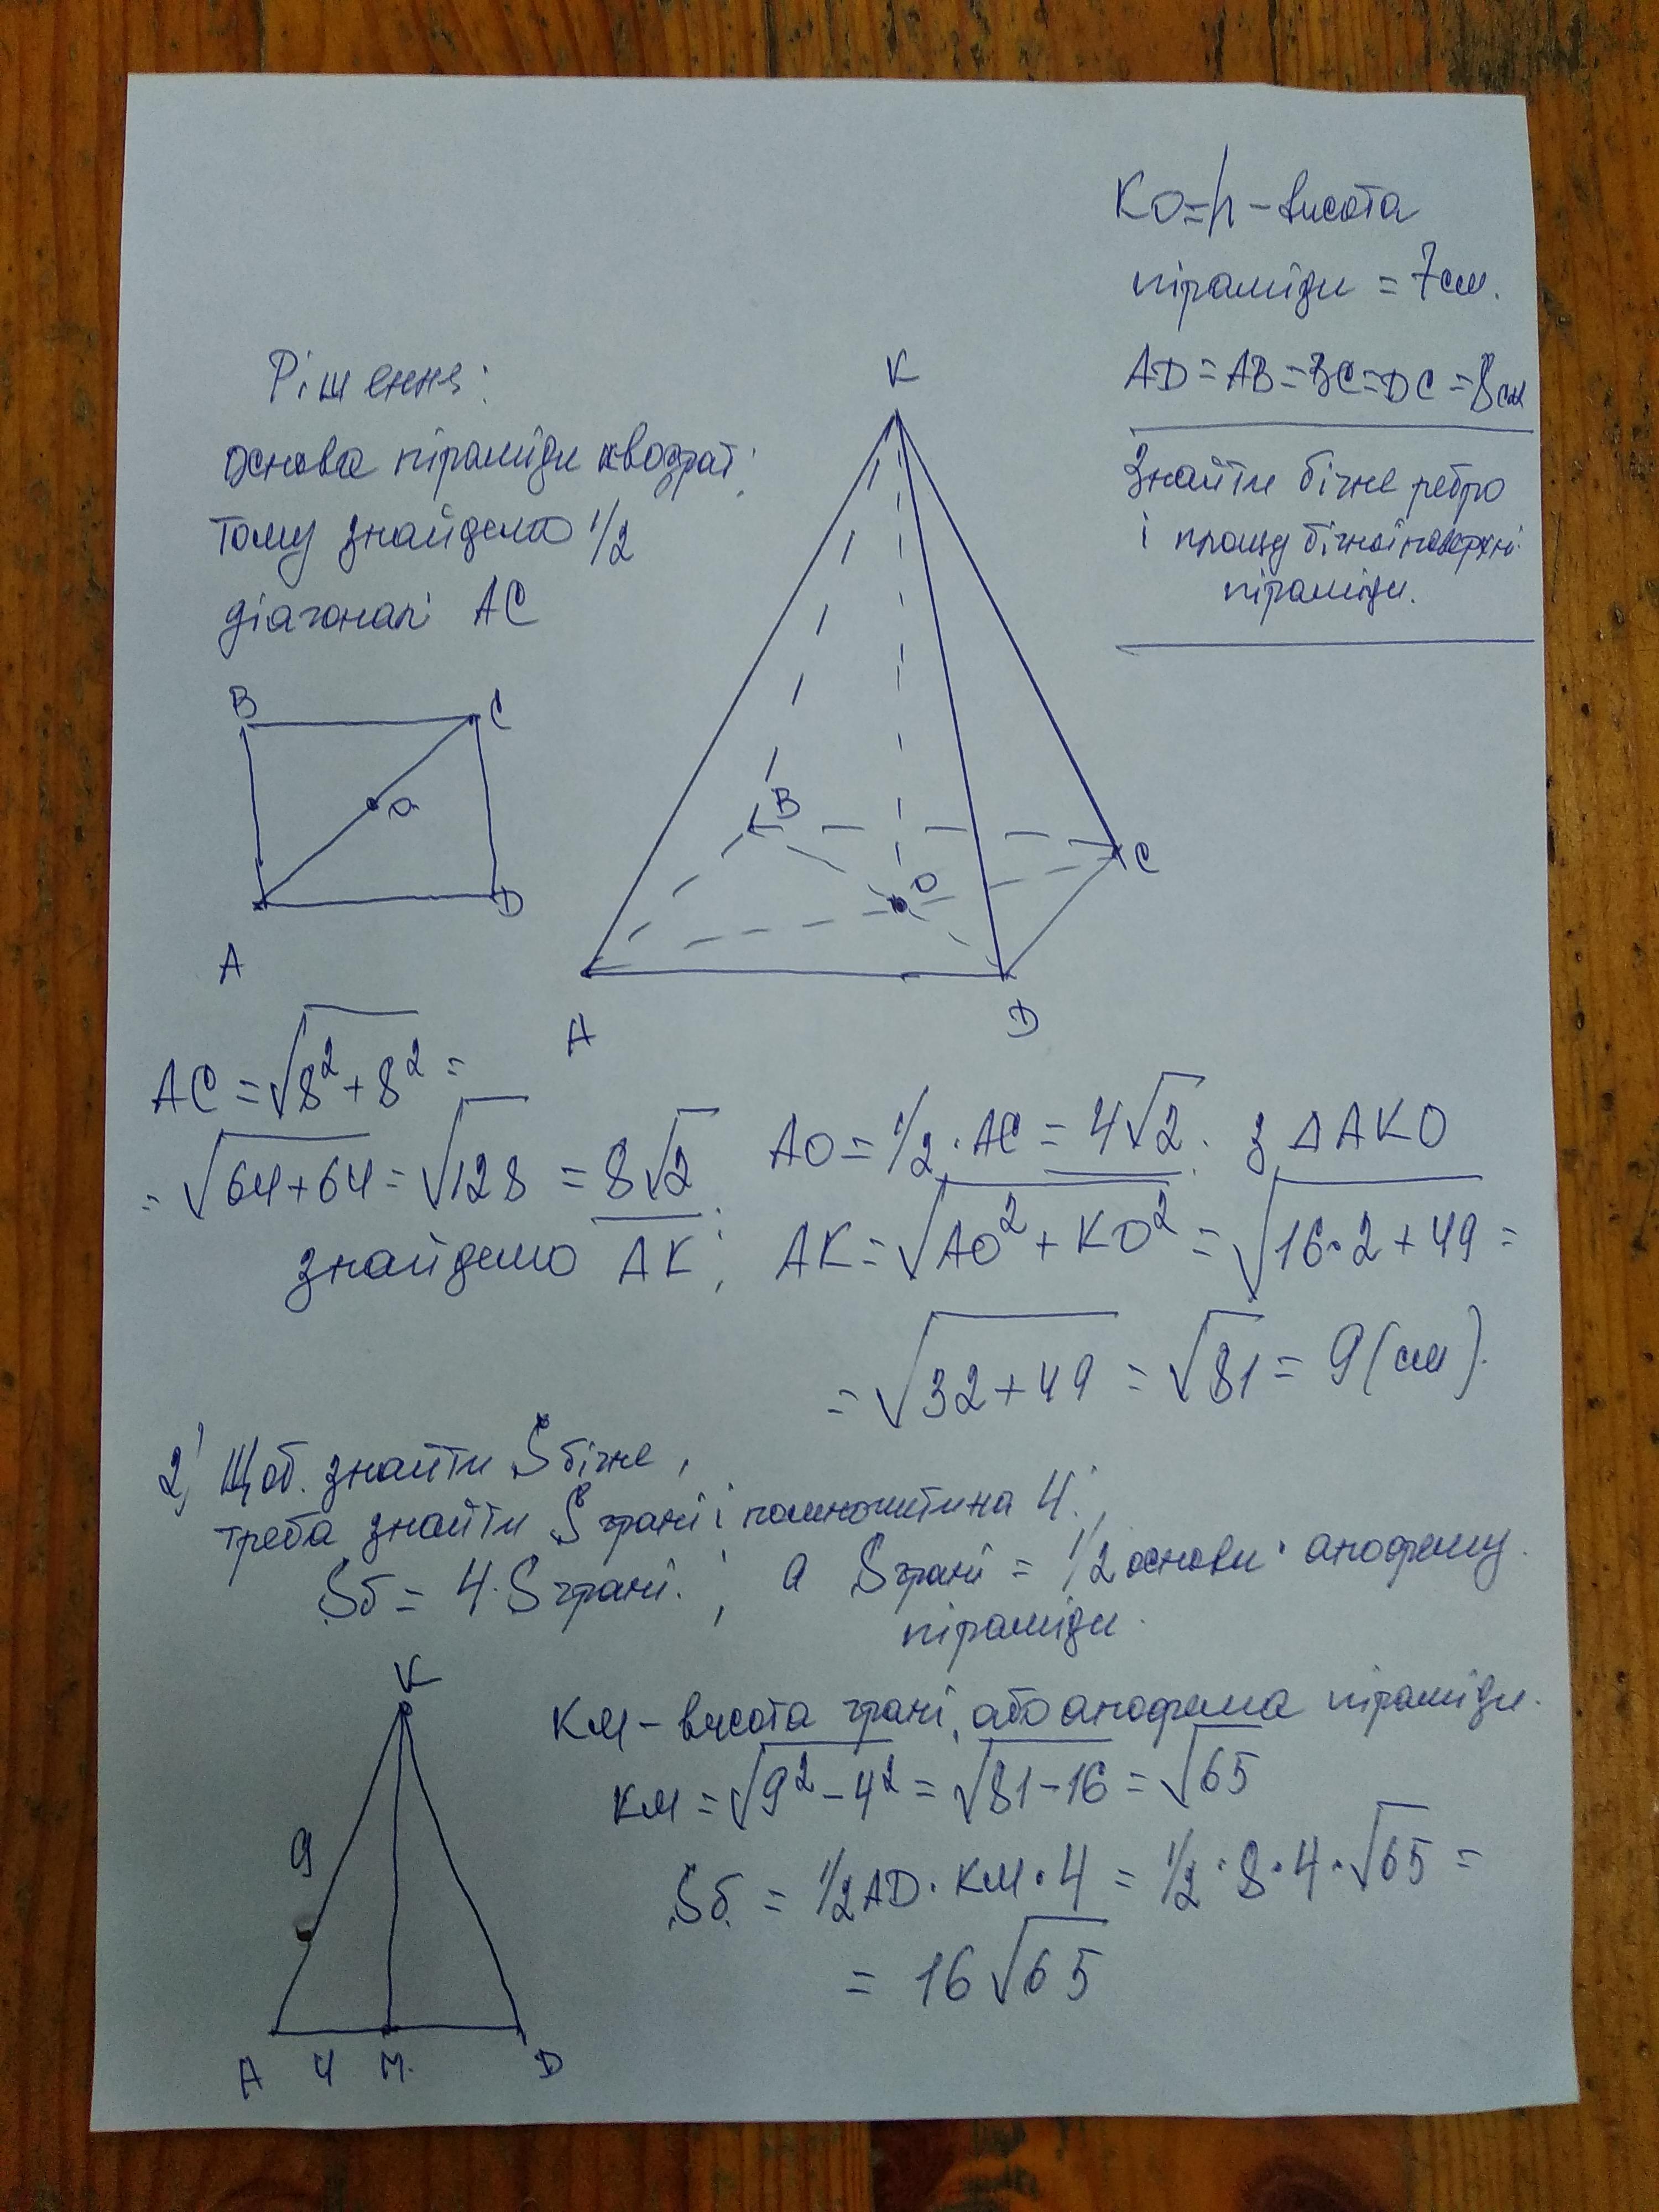 KO=h – висота
піраміди = 7см.
AD=AB=BC=DC=8см
Знайти бічне ребро
і площу бічної поверхні
піраміди.
Рішення:
основа піраміди квадрат;
тому знайдемо 1/2
діагоналі AC
K
B
C
O
A
D
B
C
O
A
D
AC = √8² + 8² =
= √64+64 = √128 = 8√2;
AO = 1/2 · AC = 4√2. з △AKO
знайдемо AK; AK = √AO² + KO² = √16·2+49 =
= √32+49 = √81 = 9 (см).
2) Щоб. знайти Sбічне,
треба знайти Sграні і помножити на 4.,
Sб = 4·Sграні.; а Sграні = 1/2 основи · апофему
піраміди.
K
9
A 4 M. D
KM – висота грані, або апофема піраміди.
KM = √9² – 4² = √81–16 = √65
Sб = 1/2 AD · KM · 4 = 1/2 · 8 · 4 · √65 =
= 16√65